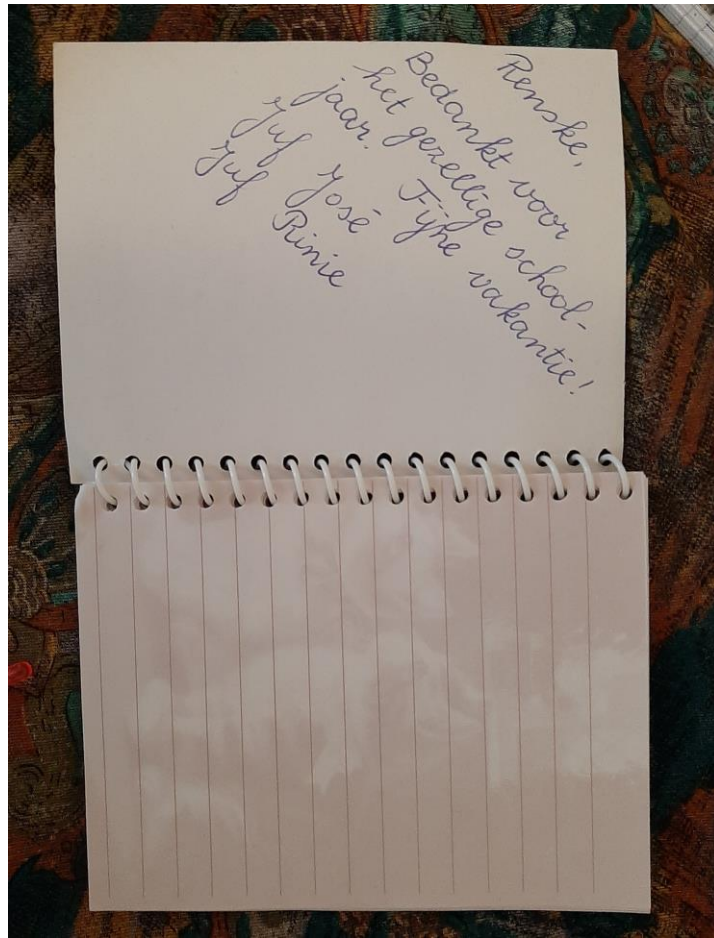 Renske,
Bedankt voor
het gezellige school-
jaar. Fijne vakantie!
Juf José
Juf Rinie